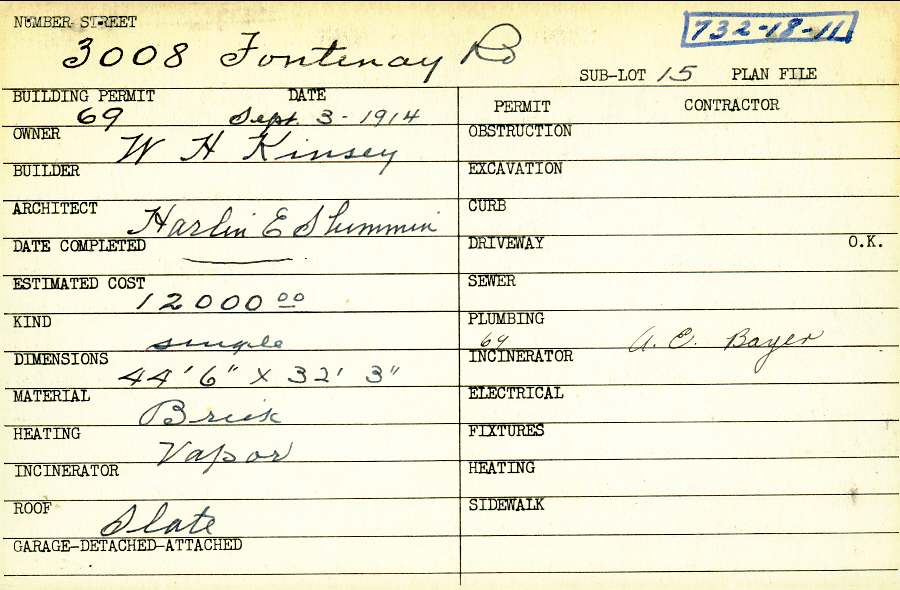 NUMBER STREET
3008 Fontenay Rd
732-18-11
SUB-LOT 15 PLAN FILE
BUILDING PERMIT DATE
69 Sept. 3-1914
OWNER W H Kinsey
BUILDER
ARCHITECT Harlin E Shimmin
DATE COMPLETED
ESTIMATED COST
12000 00
KIND single
DIMENSIONS 44' 6" X 32' 3"
MATERIAL Brick
HEATING Vapor
INCINERATOR
ROOF Slate
GARAGE-DETACHED-ATTACHED
PERMIT CONTRACTOR
OBSTRUCTION
EXCAVATION
CURB
DRIVEWAY O.K.
SEWER
PLUMBING
69 A. C. Bayer
INCINERATOR
ELECTRICAL
FIXTURES
HEATING
SIDEWALK